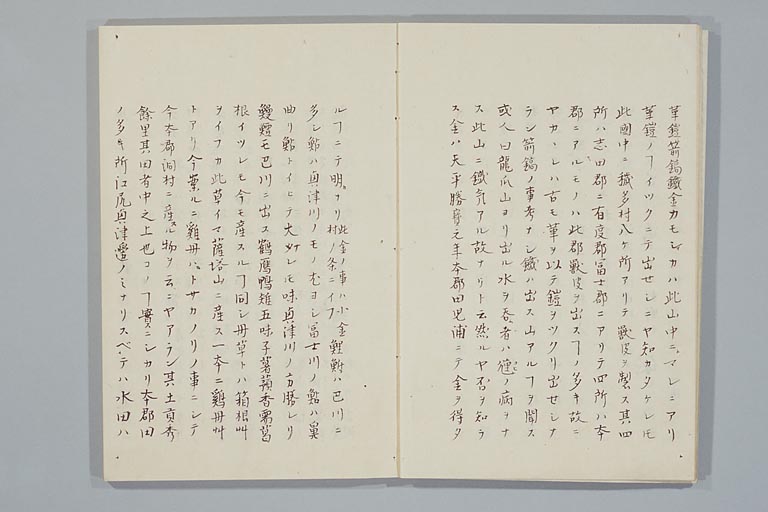 革鎧箭鏑鐵金カモシカハ此山中ニマレニアリ
革鎧ノヿイツクニテ出セシニヤ知カタケレ𪜈
此國中ニ穢多村八ケ所アリテ獸皮ヲ製ス其四
所ハ志田郡ニ有度郡富士郡ニアリテ四所ハ本
郡ニアルモノハ此郡獸皮ヲ出スヿノ多キ故ニ
ヤカヽレハ古モ革ヲ以テ鎧ヲツクリ出セシナ
ラン箭鏑ノ事考ナシ鐵ハ出ス山アルヿヲ聞ス
或人曰龍爪山ヨリ出ル水ヲ呑者ハ癭ノ病ヲナ
ス此山ニ鐵気アル故ナリト云然ルヤ否ヲ知ラ
ス金ハ天平勝寳元年本郡田児浦ニテ金ヲ得タ
ルヿニテ明ナリ此金ノ事ハ小金村ノ条ニイフ鯉鮒ハ巴川ニ
多シ鮎ハ奥津川ノモノ尤ヨシ富士川ノ鮎ハ鼻
曲リ鮎トイヒテ大ナレ𪜈味奥津川ノ方勝レリ
鰻鱣モ巴川ニ出ス鶴鷹鴨雉五味子薯蕷香薷葛
根イツレモ今モ産スルヿ同シ丹草トハ箱根艸
ヲイフカ此草イマ薩埵山ニ産ス一本ニ鶏冊艸
トアリ今案ルニ鶏冊ハトサカノリノ事ニシテ
今本郡洞村ニ産スル物ヲ云ニヤアラン其土貢秀
餘里其田者中之上也コノヿ實ニシカリ本郡田
ノ多キ所江尻奥津邉ノミナリスヘテハ水田ハ